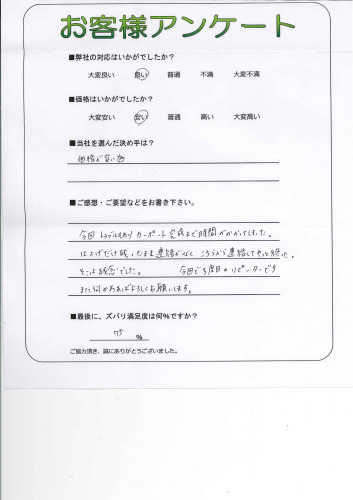 お客様アンケート
■弊社の対応はいかがでしたか？
大変良い 良い 普通 不満 大変不満
■価格はいかがでしたか？
大変安い 安い 普通 高い 大変高い
■当社を選んだ決め手は？
価格が安い
■ご感想・ご要望などをお書き下さい。
今回トラブルもありカーポート完成まで時間がかかってしまった。
仕上げだけ残ったまま連絡がなく こちらから連絡してやっと終った。
そこは残念でした。 今回で3度目のリピーターです
また何かあればよろしくお願いします。
■最後に、ズバリ満足度は何%ですか？
75 %
ご協力頂き、誠にありがとうございました。